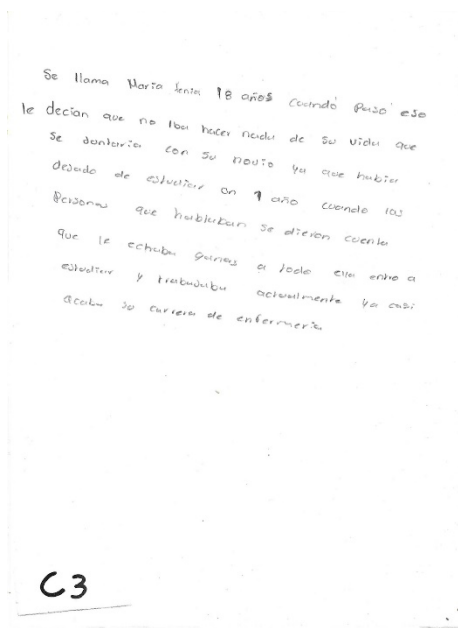 Se llama Maria tenia 18 años cuando paso eso
le decian que no iba hacer nada de su vida que
se juntaria con su novio ya que habia
dejado de estudiar un 1 año cuando las
Personas que hablaban se dieron cuenta
que le echaba ganas a todo ella entro a
estudiar y trabajaba actualmente ya casi
acaba su carrera de enfermeria
C3